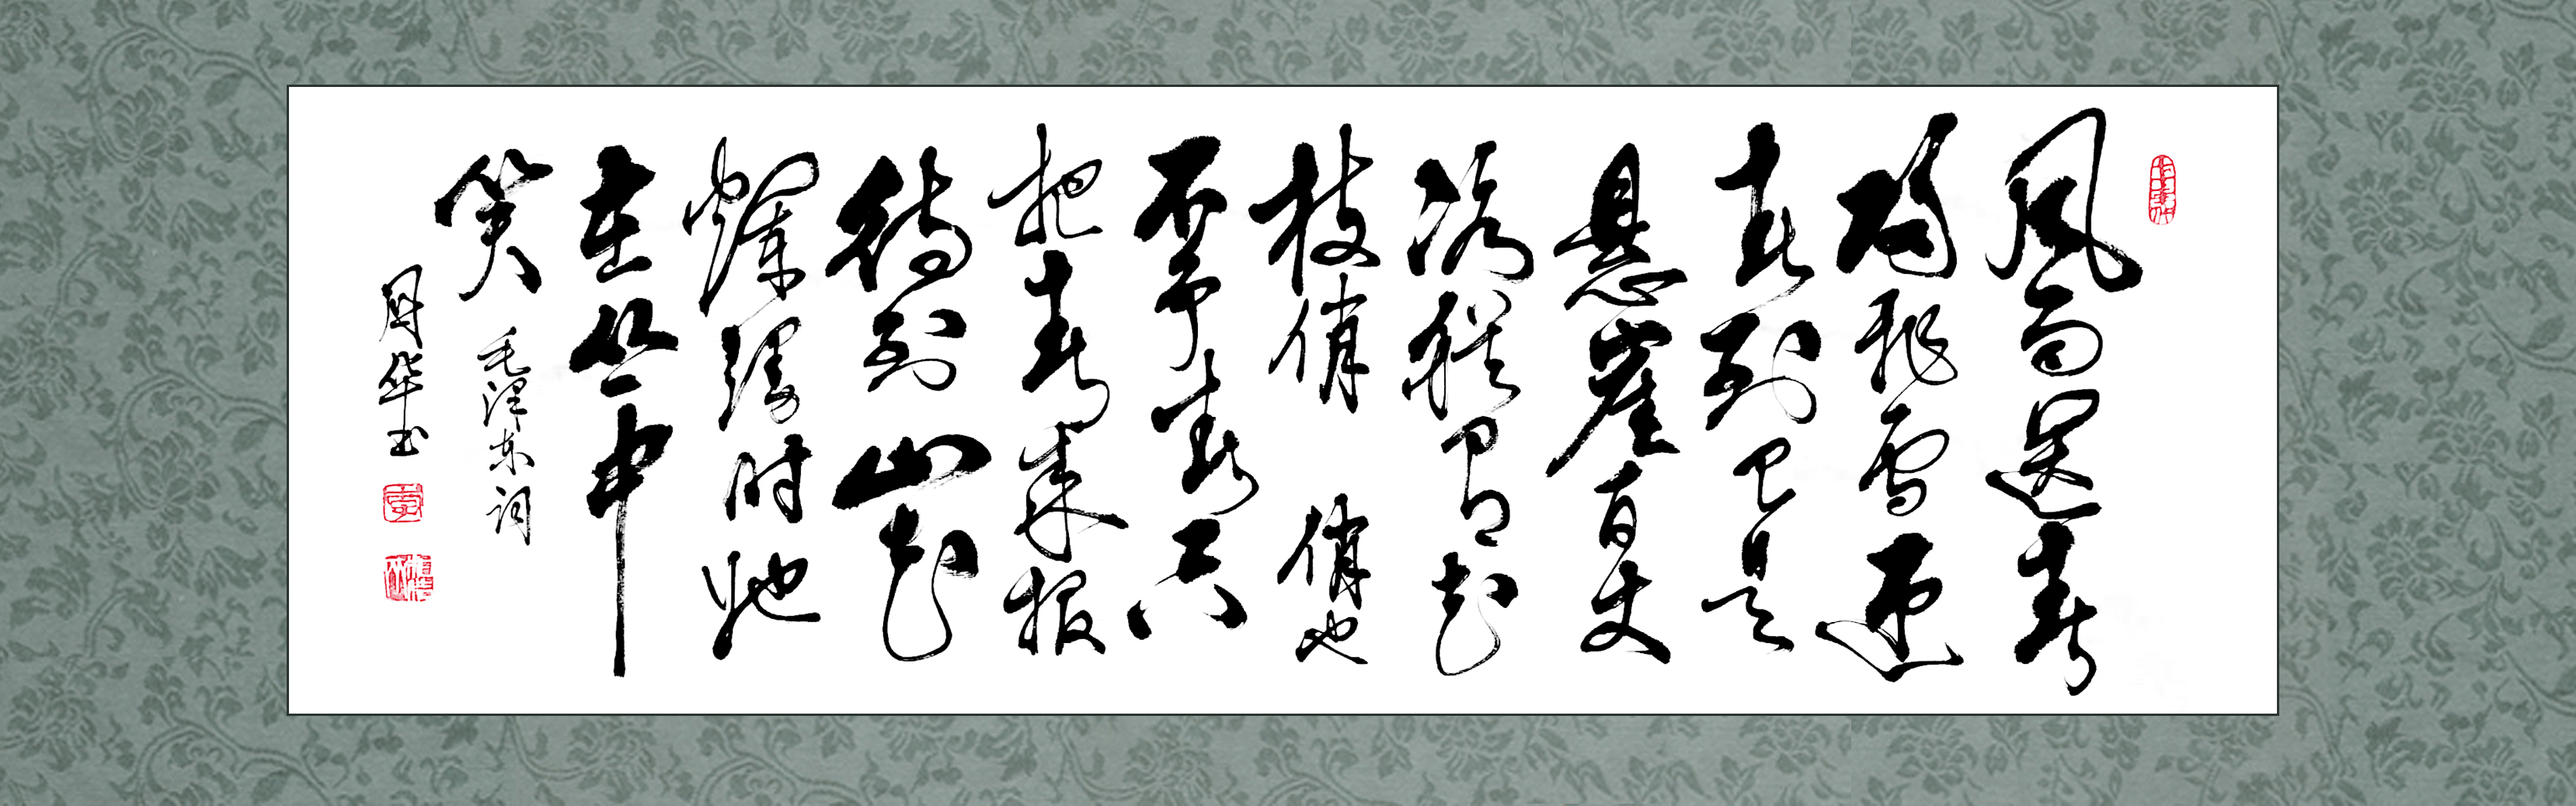 风雨送春
归飞雪迎
春到已是
悬崖百丈
冰犹有花
枝俏 俏也
不争春只
把春来报
待到山花
烂漫时她
在丛中
笑 毛泽东词
周华书